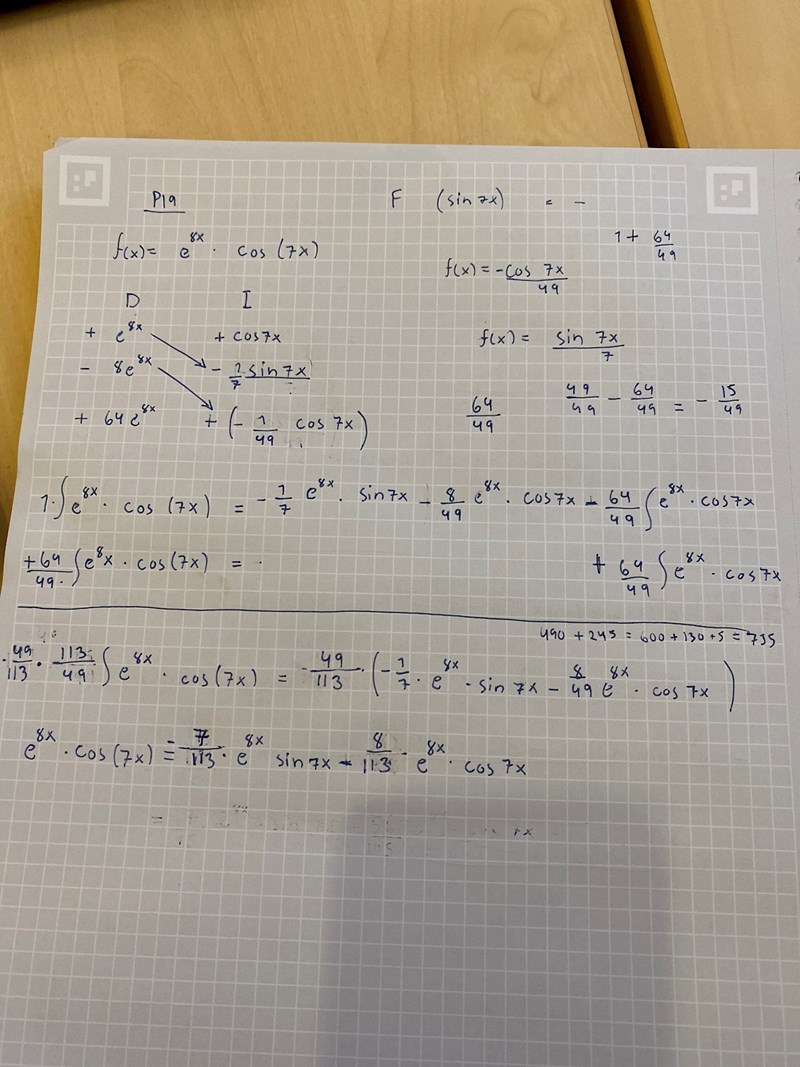 P19
F (sin 7x) = -
f(x) = e^{8x} · cos (7x)
1 + 64/49
f(x) = -cos 7x/49
D I
+ e^{8x} + cos7x
f(x) = sin 7x/7
- 8e^{8x} - 1/7 sin7x
64/49
49/49 - 64/49 = - 15/49
+ 64e^{8x} + (- 1/49 cos 7x)
1·∫e^{8x} · cos (7x) = - 1/7 e^{8x} · sin7x - 8/49 e^{8x} · cos7x - 64/49 ∫e^{8x} · cos7x
+64/49 · ∫e^{8x} · cos(7x) = · + 64/49 ∫e^{8x} · cos7x
490 + 245 = 600 + 130 + 5 = 735
·49/113 · 113/49 ∫e^{8x} · cos(7x) = -49/113 · (-1/7 · e^{8x} · sin 7x - 8/49 e^{8x} · cos 7x)
e^{8x} · cos(7x) = -7/113 · e^{8x} sin 7x - 8/113 · e^{8x} · cos 7x
=